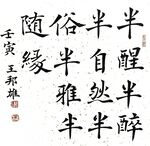 半醒半醉
半自然半
俗半雅半
随緣
壬寅 王邦雄